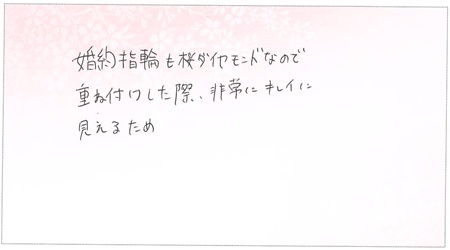 婚約指輪も桜ダイヤモンドなので
重ね付けした際、非常にキレイに
見えるため